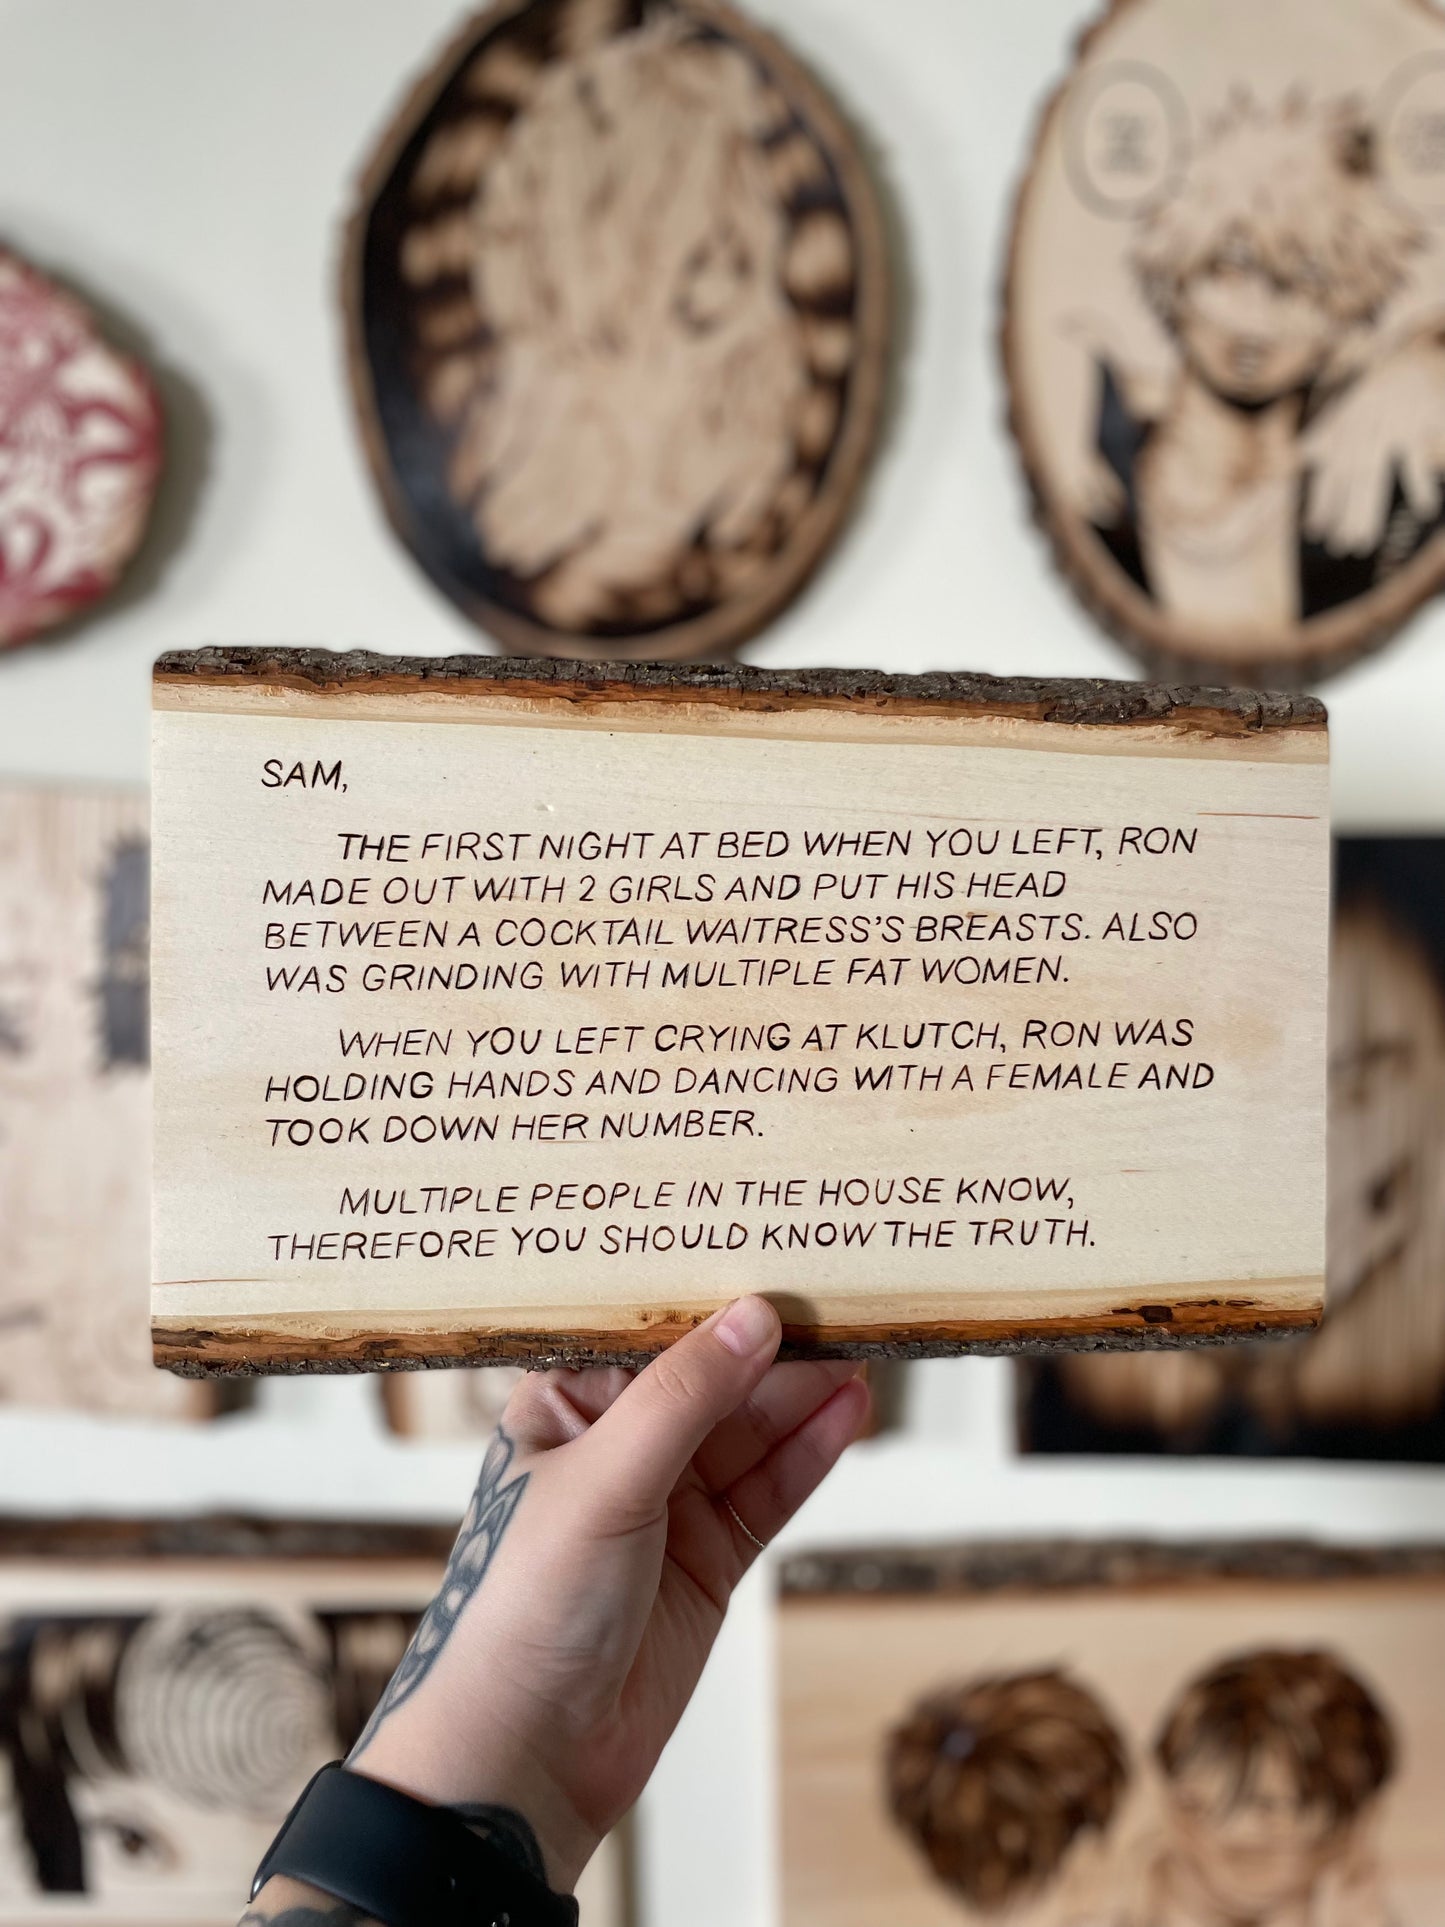 SAM,
THE FIRST NIGHT AT BED WHEN YOU LEFT, RON
MADE OUT WITH 2 GIRLS AND PUT HIS HEAD
BETWEEN A COCKTAIL WAITRESS'S BREASTS. ALSO
WAS GRINDING WITH MULTIPLE FAT WOMEN.
WHEN YOU LEFT CRYING AT KLUTCH, RON WAS
HOLDING HANDS AND DANCING WITH A FEMALE AND
TOOK DOWN HER NUMBER.
MULTIPLE PEOPLE IN THE HOUSE KNOW,
THEREFORE YOU SHOULD KNOW THE TRUTH.